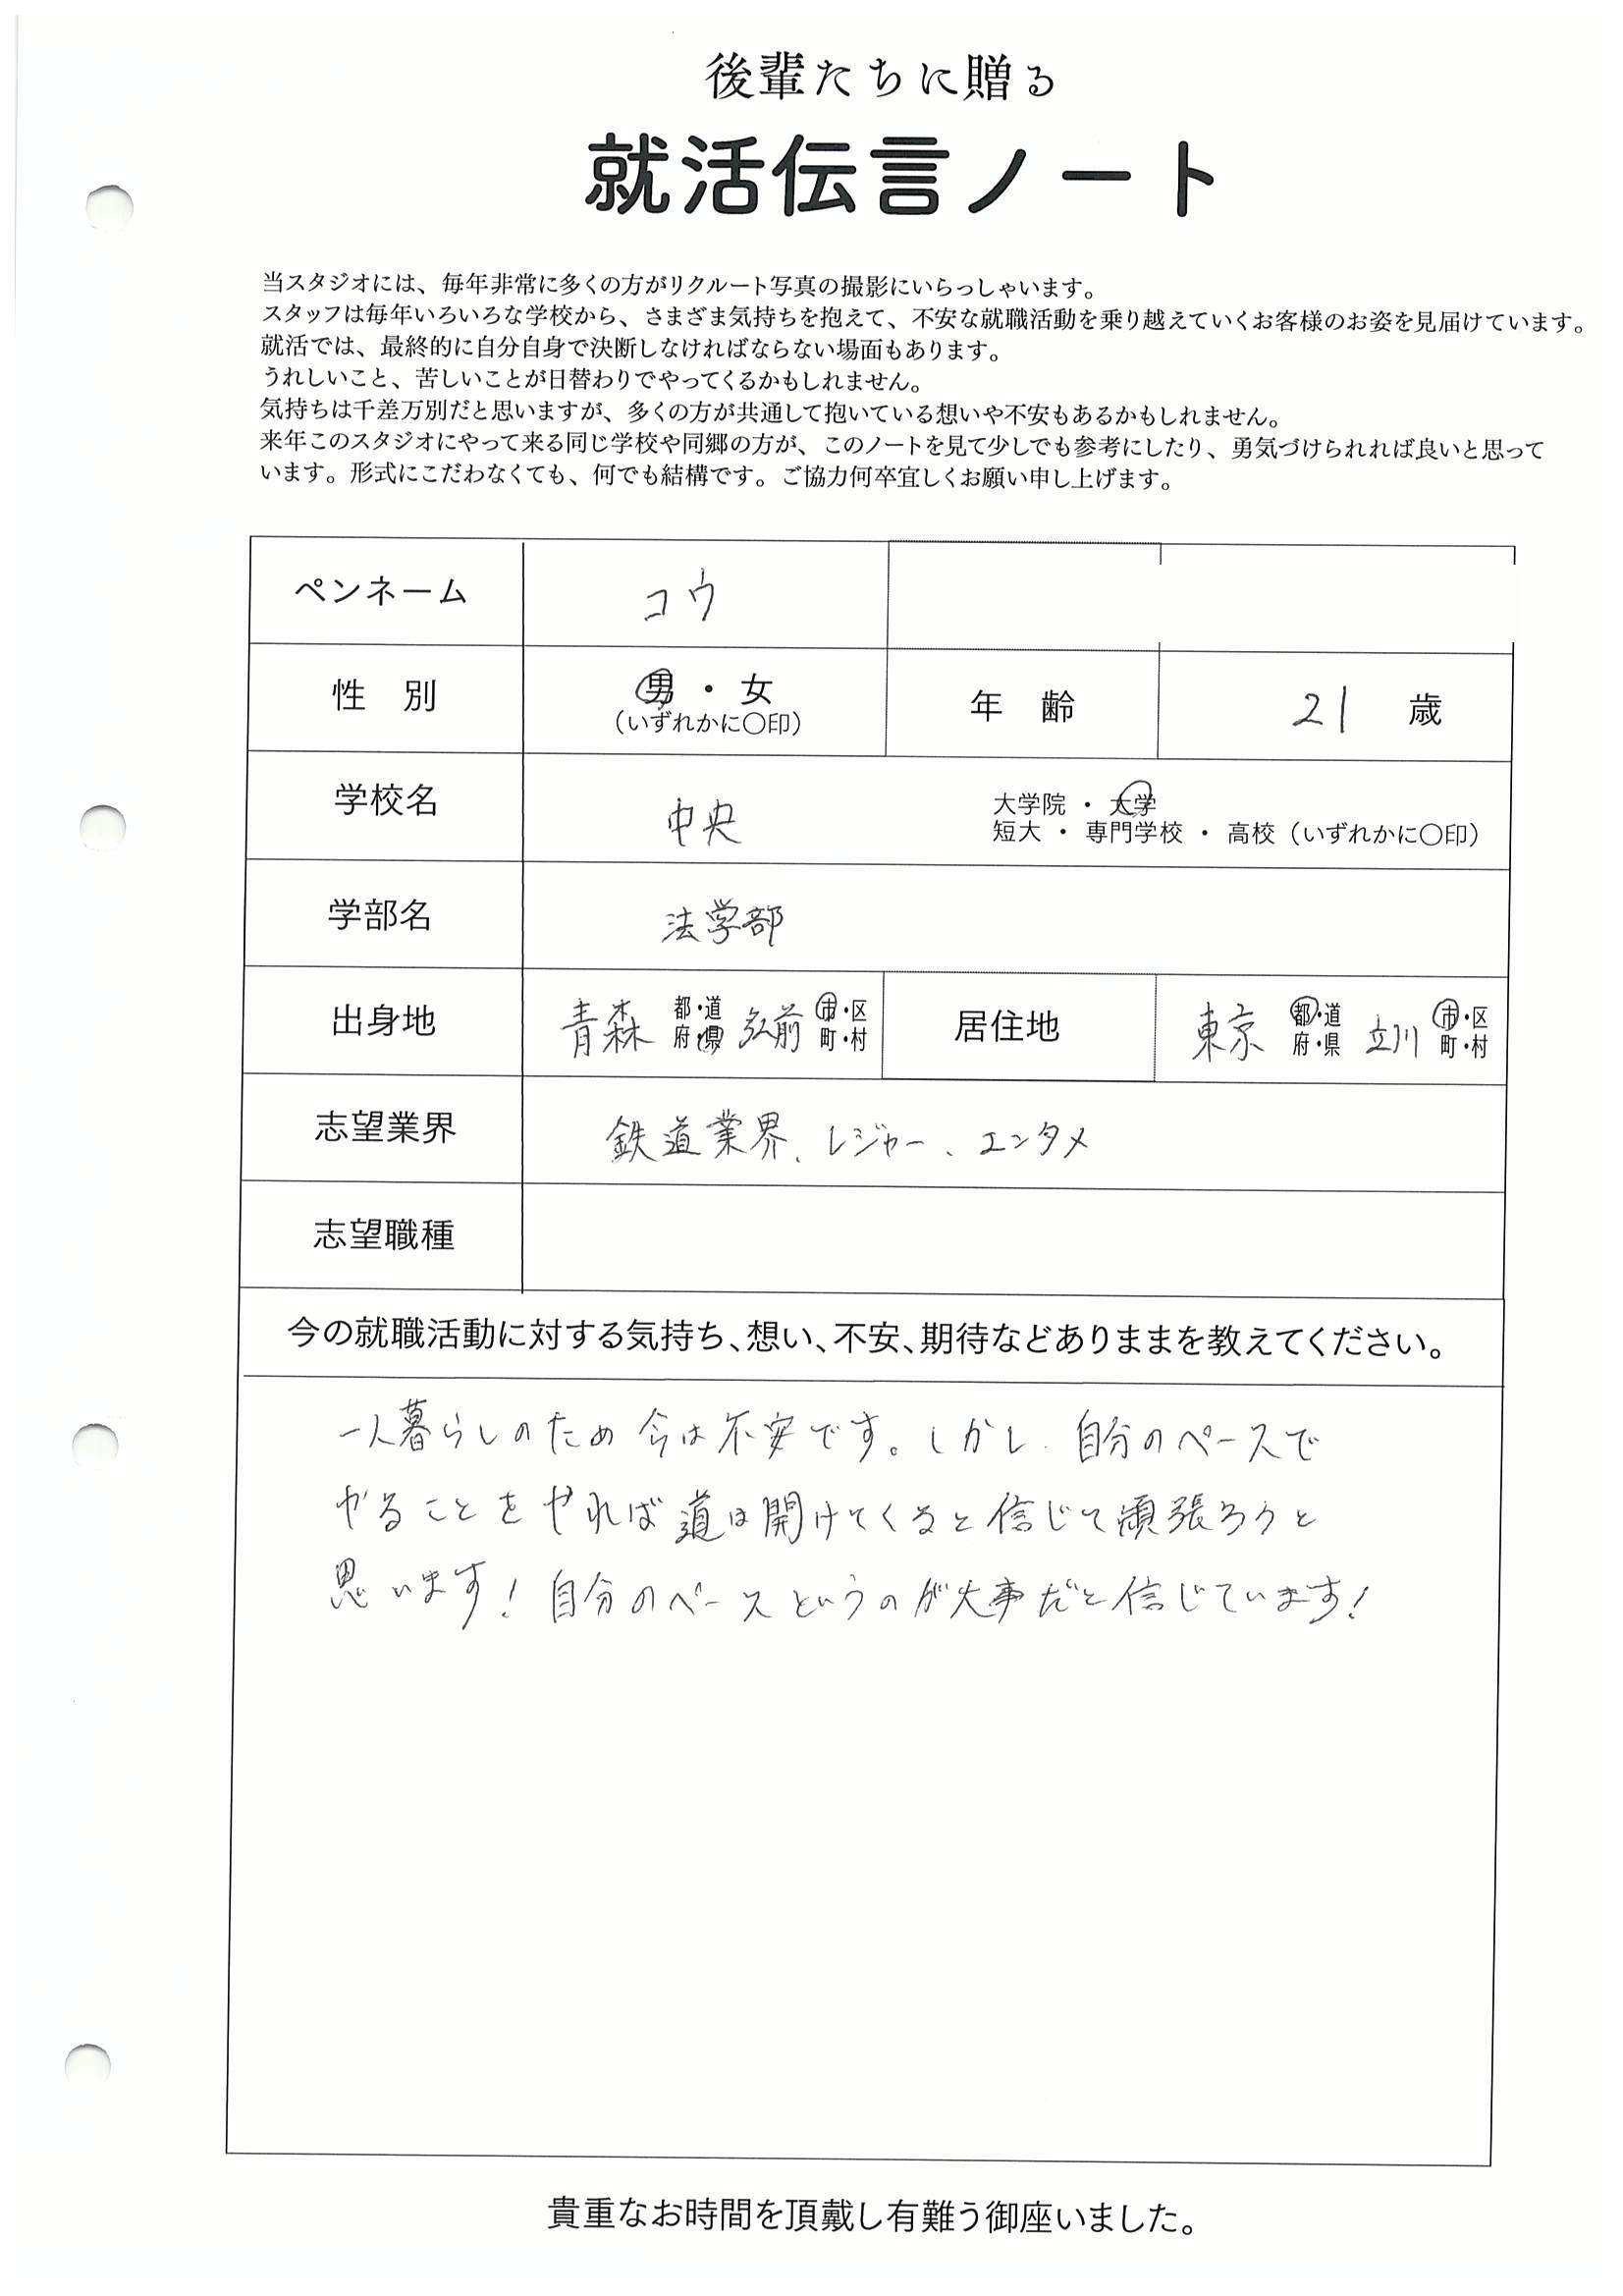 後輩たちに贈る
就活伝言ノート
当スタジオには、毎年非常に多くの方がリクルート写真の撮影にいらっしゃいます。
スタッフは毎年いろいろな学校から、さまざま気持ちを抱えて、不安な就職活動を乗り越えていくお客様のお姿を見届けています。
就活では、最終的に自分自身で決断しなければならない場面もあります。
うれしいこと、苦しいことが日替わりでやってくるかもしれません。
気持ちは千差万別だと思いますが、多くの方が共通して抱いている想いや不安もあるかもしれません。
来年このスタジオにやって来る同じ学校や同郷の方が、このノートを見て少しでも参考にしたり、勇気づけられれば良いと思って
います。形式にこだわなくても、何でも結構です。ご協力何卒宜しくお願い申し上げます。
ペンネーム コウ
性 別 男・女 (いずれかに〇印) 年 齢 21 歳
学校名 中央 大学院 ・ 大学
短大 ・ 専門学校 ・ 高校 (いずれかに〇印)
学部名 法学部
出身地 青森 都・道府・県 弘前 市・区町・村 居住地 東京 都・道府・県 立川 市・区町・村
志望業界 鉄道業界、レジャー、エンタメ
志望職種
今の就職活動に対する気持ち、想い、不安、期待などありままを教えてください。
一人暮らしのため今は不安です。しかし、自分のペースで
やることをやれば道は開けてくると信じて頑張ろうと
思います！自分のペースというのが大事だと信じています！
貴重なお時間を頂戴し有難う御座いました。